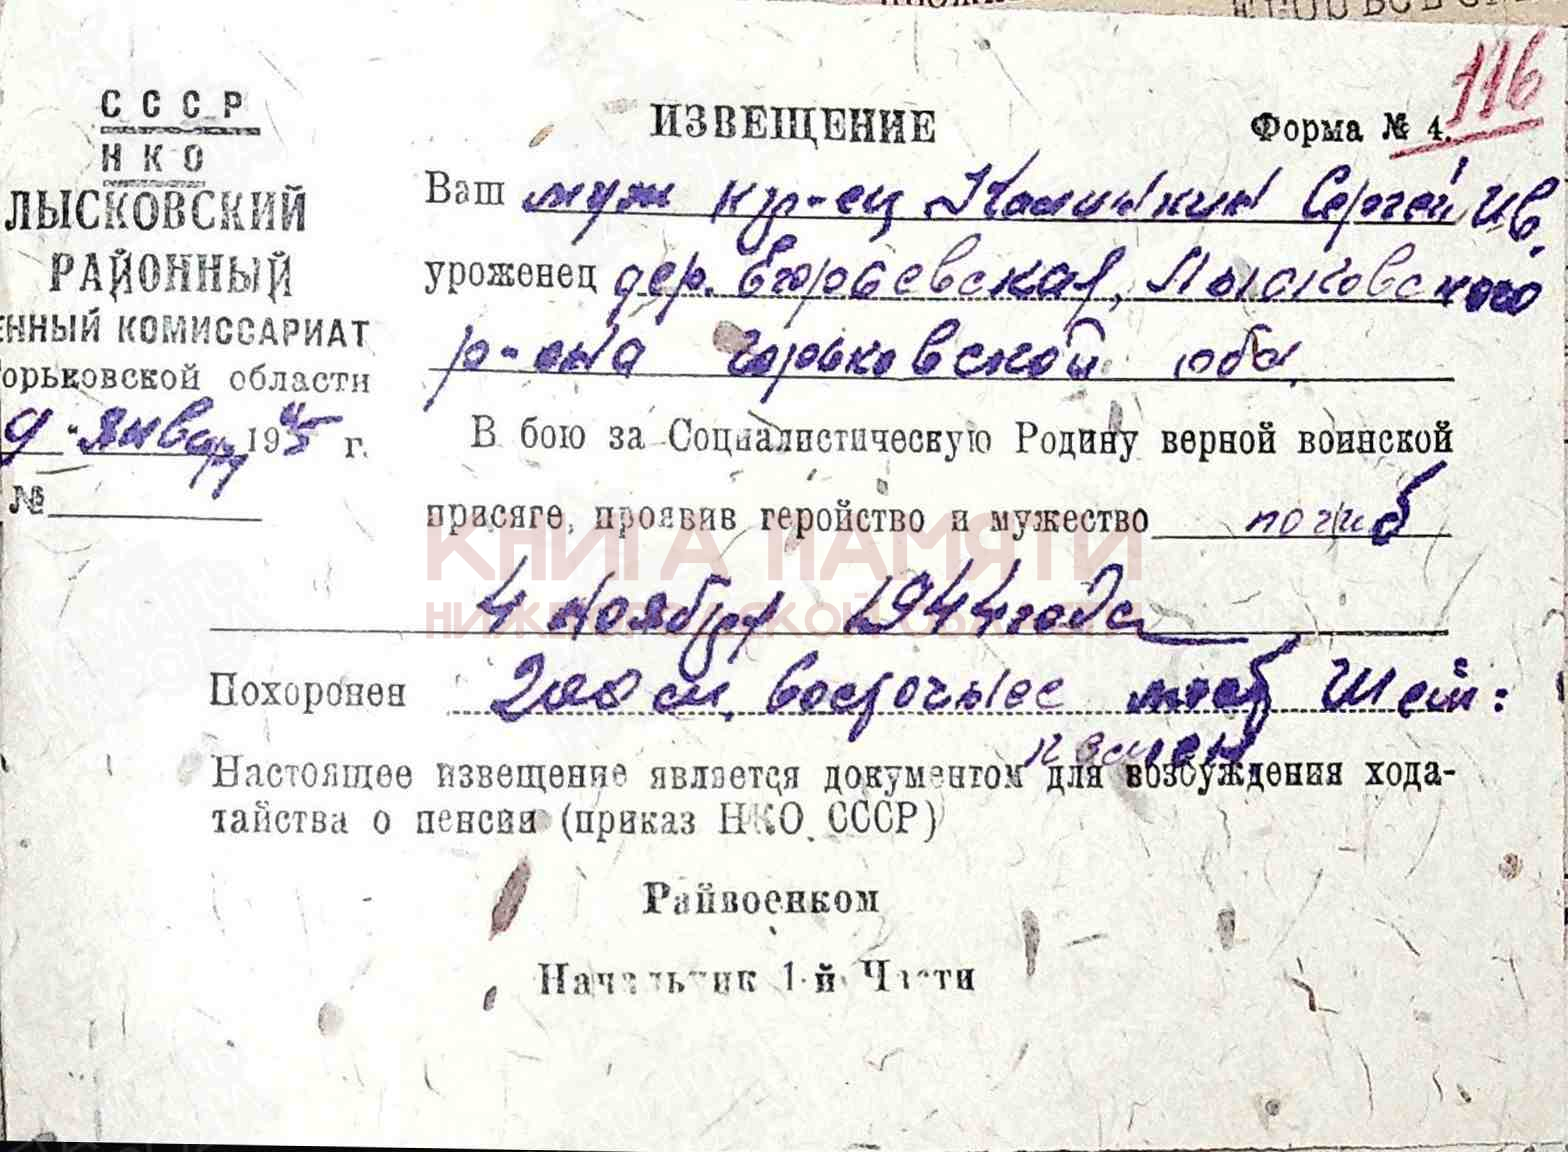 116
СССР
НКО
ЛЫСКОВСКИЙ
РАЙОННЫЙ
ЕННЫЙ КОМИССАРИАТ
орьковской области
9 январ 1945 г.
№
ИЗВЕЩЕНИЕ
Форма № 4.
Ваш муж кр-ец Калинкин Сергей Ив.
уроженец дер. Егорьевская, Лысковского
р-она Горьковской обл.
В бою за Социалистическую Родину верной воинской
присяге, проявив геройство и мужество погиб
4 ноября 1944 года
Похоронен 200 м. восточнее Шей-
Настоящее извещение является документом для возбуждения хода-
тайства о пенсии (приказ НКО СССР)
Райвоенком
Начальник 1-й Части
КНИГА ПАМЯТИ
НИЖЕГОРОДСКОЙ ОБЛАСТИ